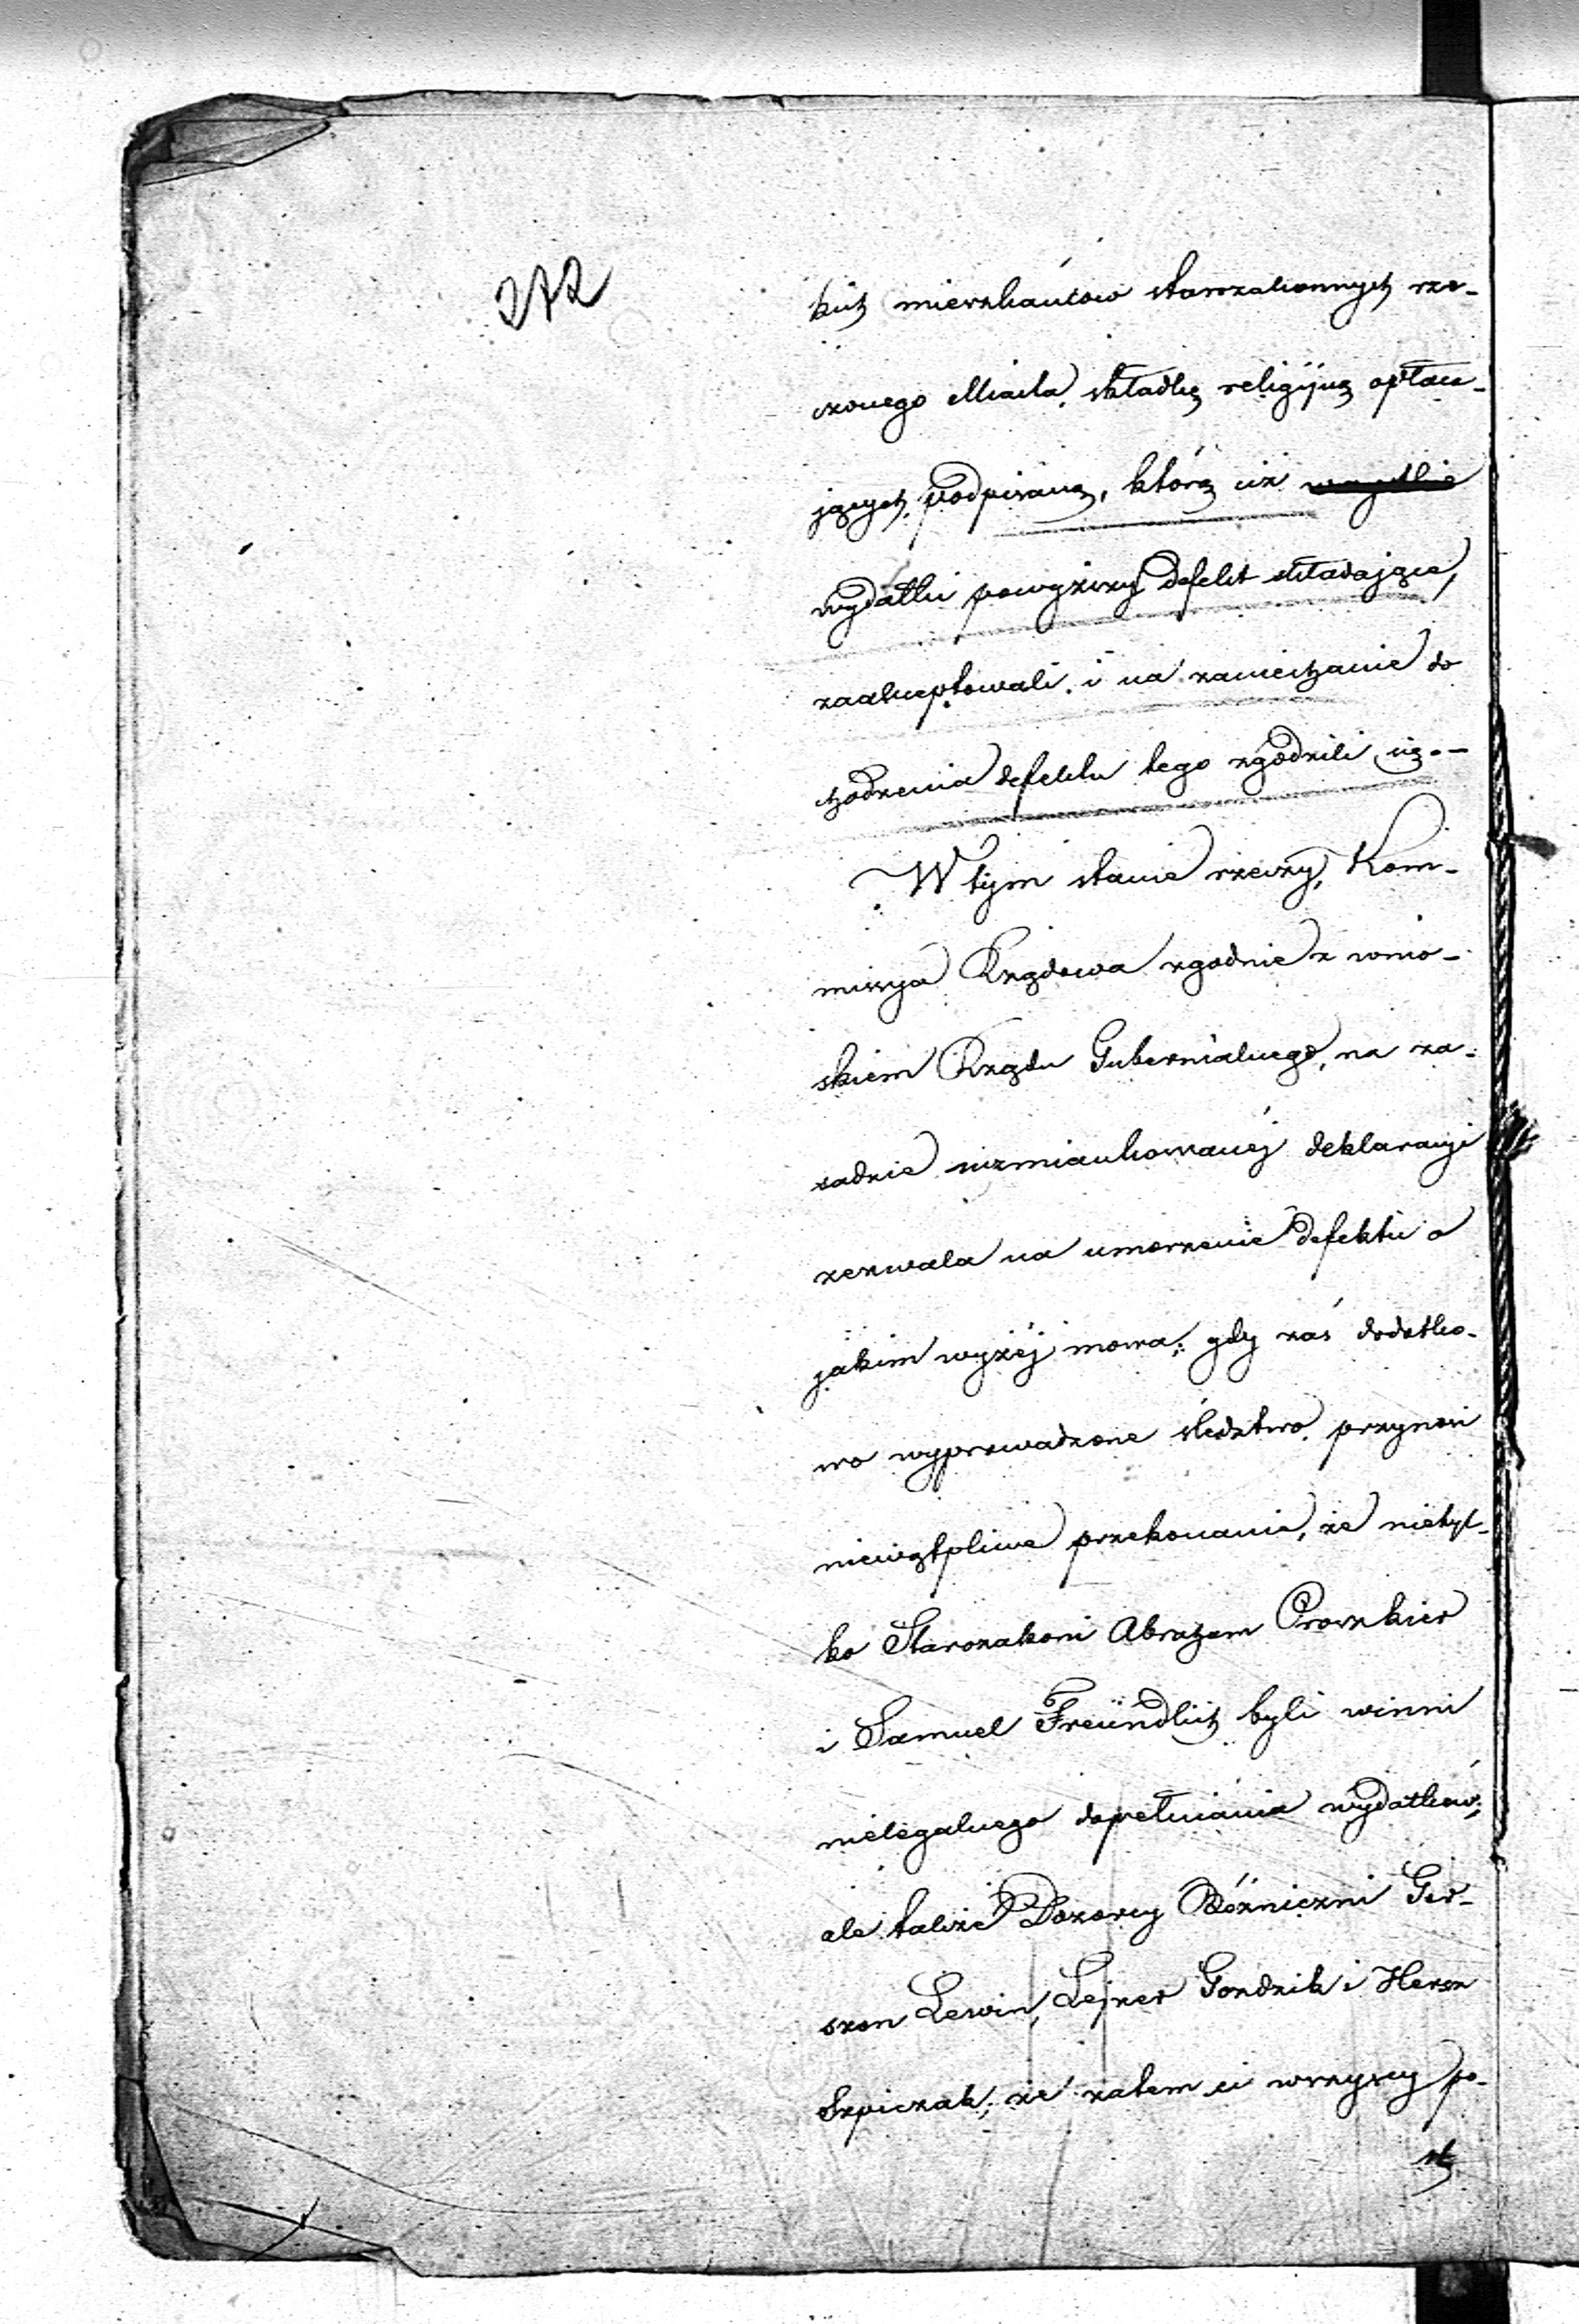 272
kich mieszkańców starozakonnych rze-
czonego Miasta, składkę religijną opłaca-
jących, podpisaną, którą ciż wszystkie
wydatki powyższy defekt składające,
zaakceptowali i na zaniechanie do
chodzenia defektu tego zgodzili się.-
W tym stanie rzeczy, Kom-
missya Rządowa zgodnie z wnio-
skiem Rządu Gubernialnego, na za-
sadzie wzmiankowanéj deklaracyi
zezwala na umorzenie defektu o
jakim wyżéj mowa; gdy zaś dodatko-
wo wyprowadzone śledztwo, przynosi
niewątpliwe przekonanie, że nietyl-
ko Starozakoni Abraham Prowizkier
i Samuel Freündlich byli winni
nielegalnego dopełniania wydatków,
ale także Dozorcy Bóżniczni Ger-
szon Lewin, Lejzer Gondzik i Hersz
Szpiczak; że zatem ci wszyscy po-